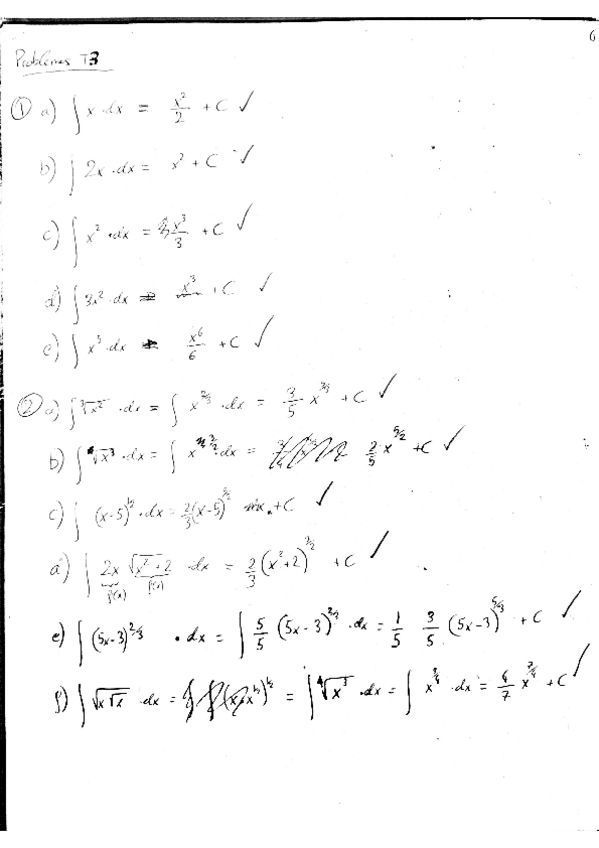 6
Problemas T3
① a) ∫ x · dx = x²/2 + C ✓
b) ∫ 2x · dx = x² + C ✓
c) ∫ x² · dx = x³/3 + C ✓
d) ∫ 3x² · dx = x³ + C ✓
e) ∫ x⁵ · dx = x⁶/6 + C ✓
② a) ∫ ∛x² · dx = ∫ x^(2/3) · dx = 3/5 x^(5/3) + C ✓
b) ∫ √x³ · dx = ∫ x^(3/2) · dx = 2/5 x^(5/2) + C ✓
c) ∫ (x-5)^(1/2) · dx = 2/3 (x-5)^(3/2) + C ✓
d) ∫ 2x √(x²+2) dx = 2/3 (x²+2)^(3/2) + C ✓
f'(x) f(x)
e) ∫ (5x-3)^(2/3) · dx = ∫ 5/5 (5x-3)^(2/3) · dx = 1/5 3/5 (5x-3)^(5/3) + C ✓
f) ∫ √(x√x) · dx = = ∫ ∜x³ · dx = ∫ x^(3/4) · dx = 4/7 x^(7/4) + C ✓